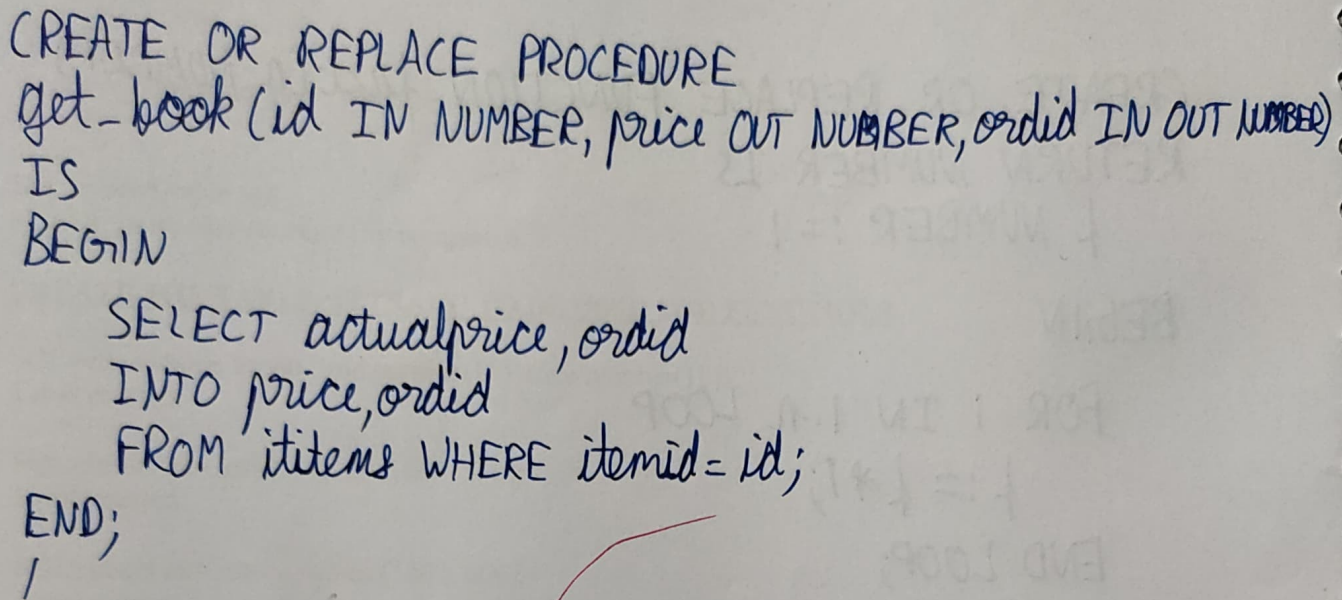 CREATE OR REPLACE PROCEDURE
get_book (id IN NUMBER, price OUT NUMBER, ordid IN OUT NUMBER)
IS
BEGIN
SELECT actualprice, ordid
INTO price, ordid
FROM ititems WHERE itemid = id;
END;
/